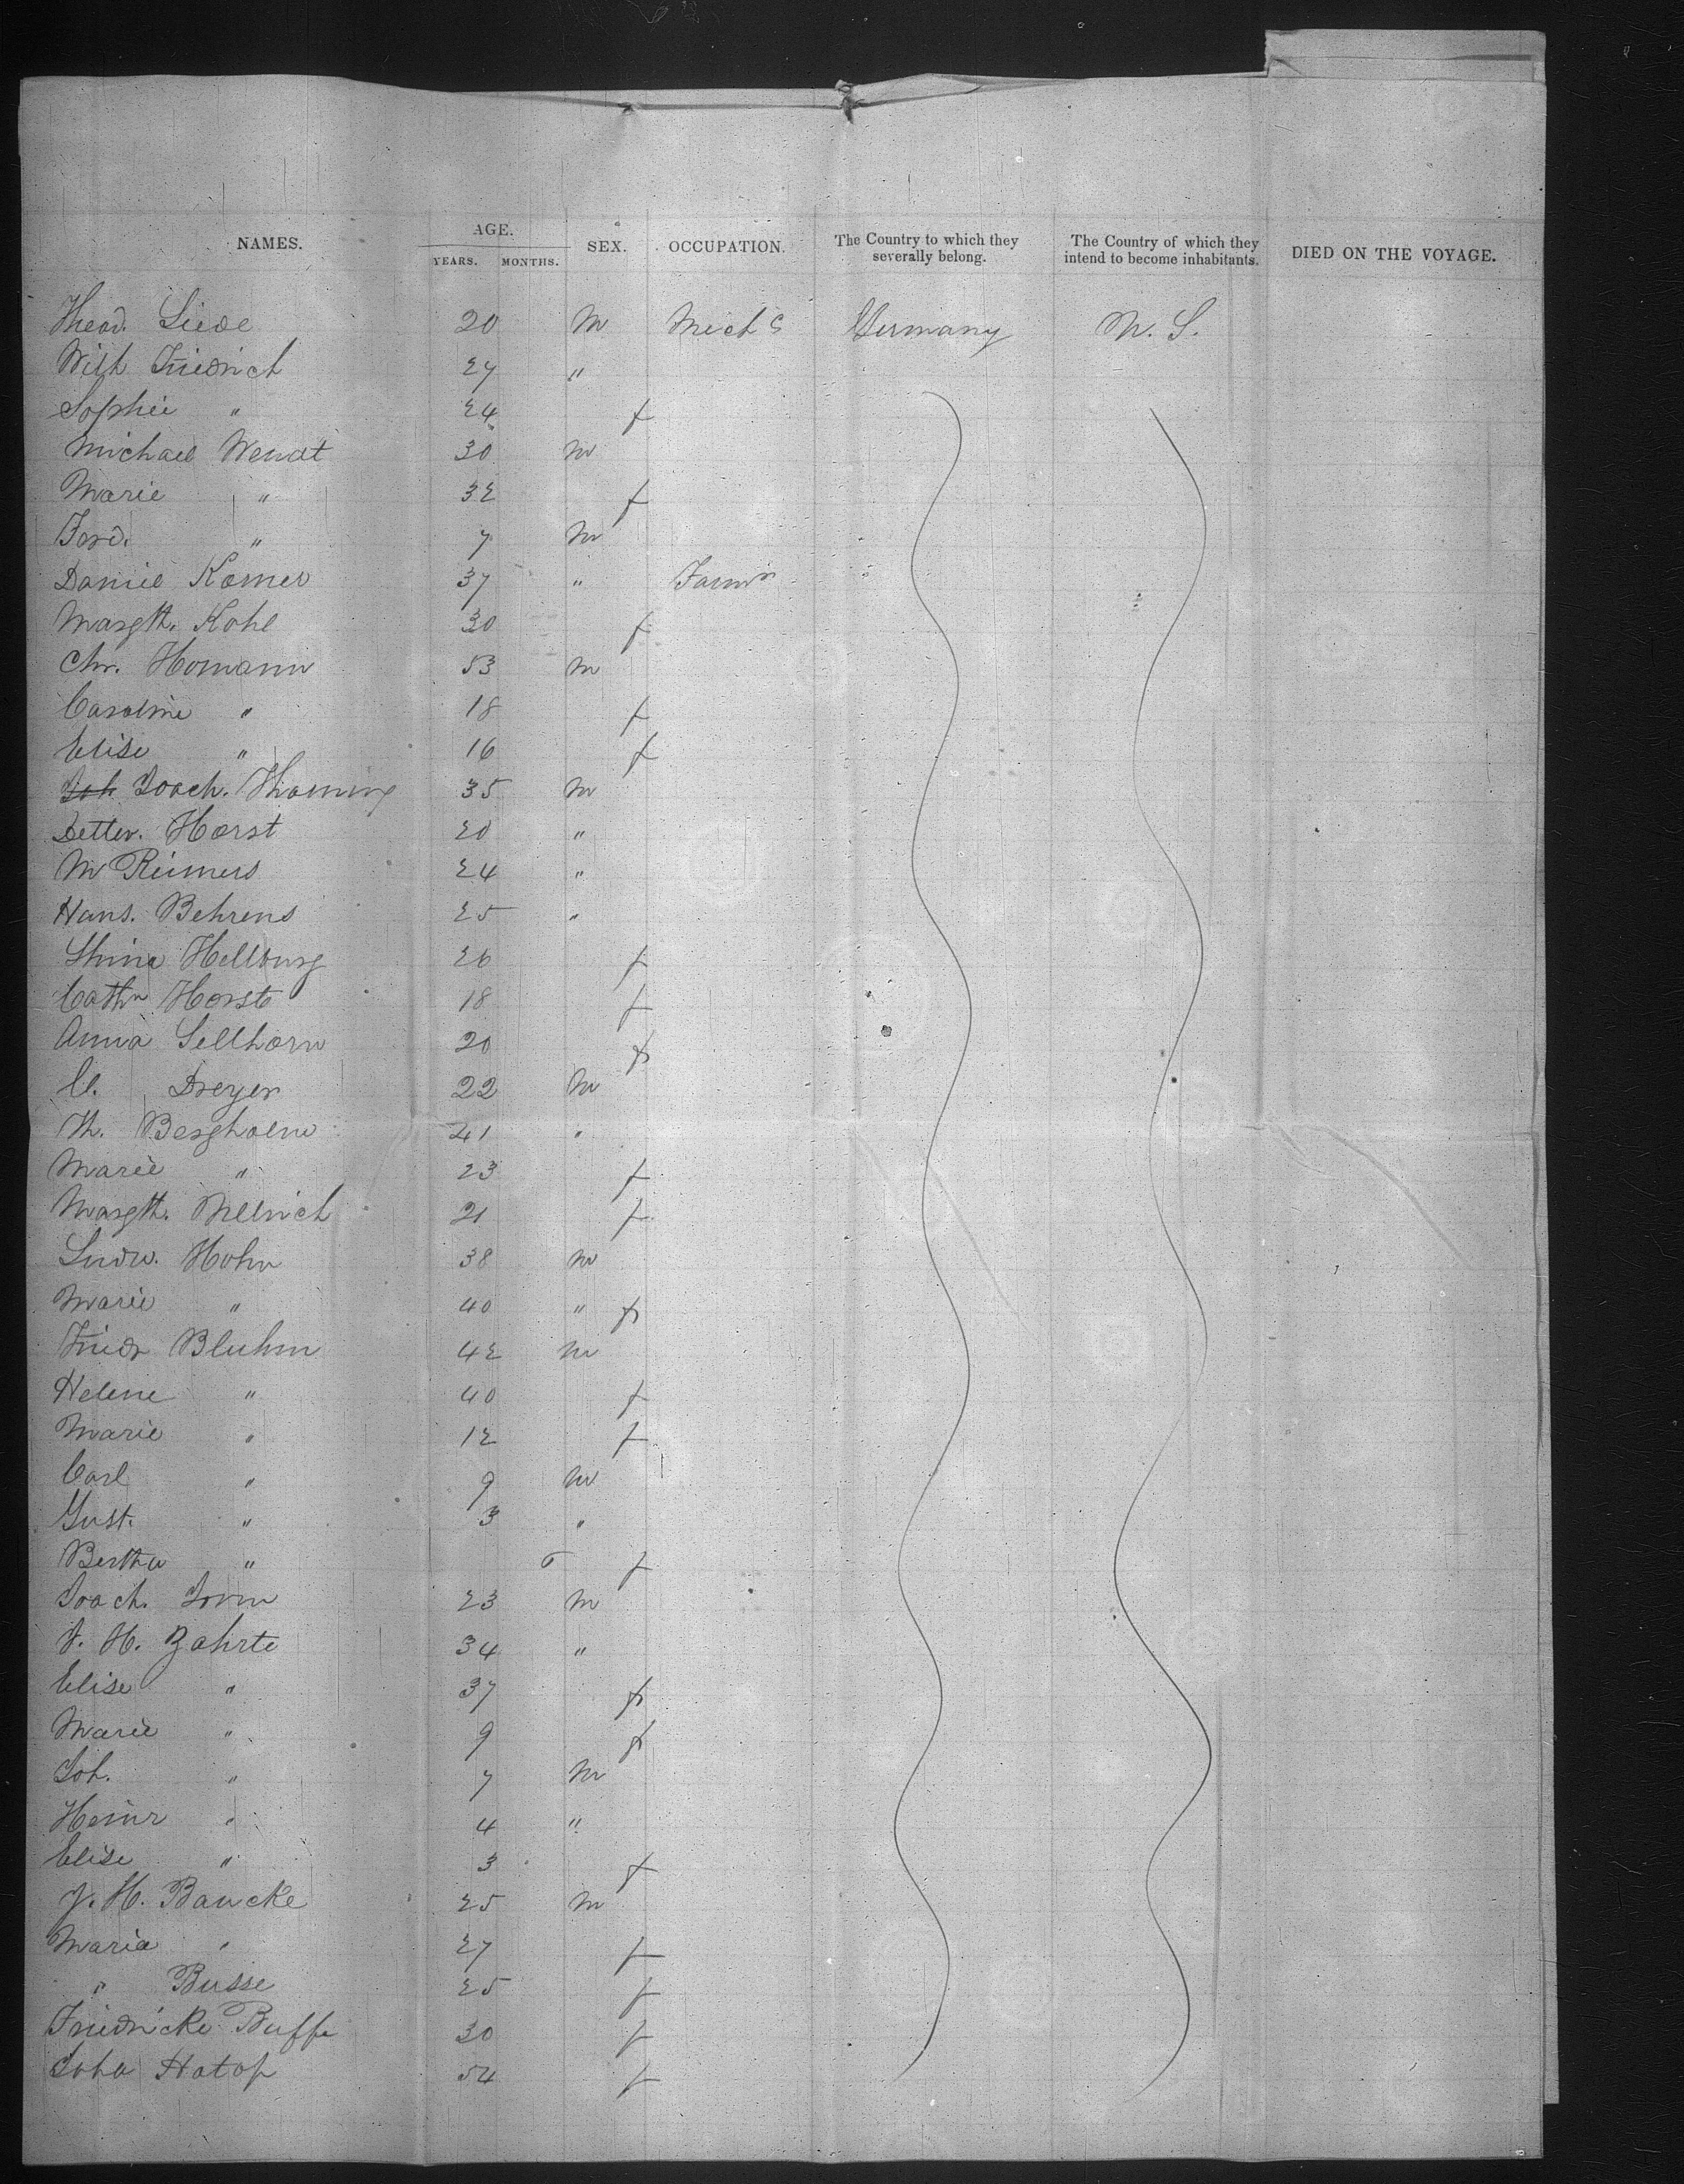 NAMES. AGE. YEARS. MONTHS. SEX. OCCUPATION. The Country to which they severally belong. The Country of which they intend to become inhabitants. DIED ON THE VOYAGE.
Theod. Liede 20 M Mech Germany U. S.
Wilh Friedrich 27 "
Sophie " 24 f
Michael Wendt 30 M
Marie " 32 f
Ferd. " 7 M
Daniel Korner 37 " Farmr
Margth. Kohl 30 f
Chr. Homann 53 M
Caroline " 18 f
Elise " 16 f
Joh Joach. 35 M
Detlev. Horst 20 "
M Reimers 24 "
Hans. Behrens 25 "
Hellburg 26 f
Cathn Horst 18 f
Anna Sellhorn 20 f
C. Dreyer 22 M
Th. Bergholm 41 "
Marie " 23 f
Margth. 21 f
Ludw. Hohn 38 M
Marie " 40 " f
Friedr Bluhm 42 M
Helene " 40 f
Marie " 12 f
Carl " 9 M
Gust. " 3 "
Bertha " 6 f
Joach. 23 M
J. H. Zahrte 34 "
Elise " 37 f
Marie " 9 f
Joh. " 7 M
Heinr " 4 "
Elise " 3 f
J. H. Bancke 25 M
Maria " 27 f
" Busse 25 f
Friedricke Buffe 30 f
Joha Hatop 54 f